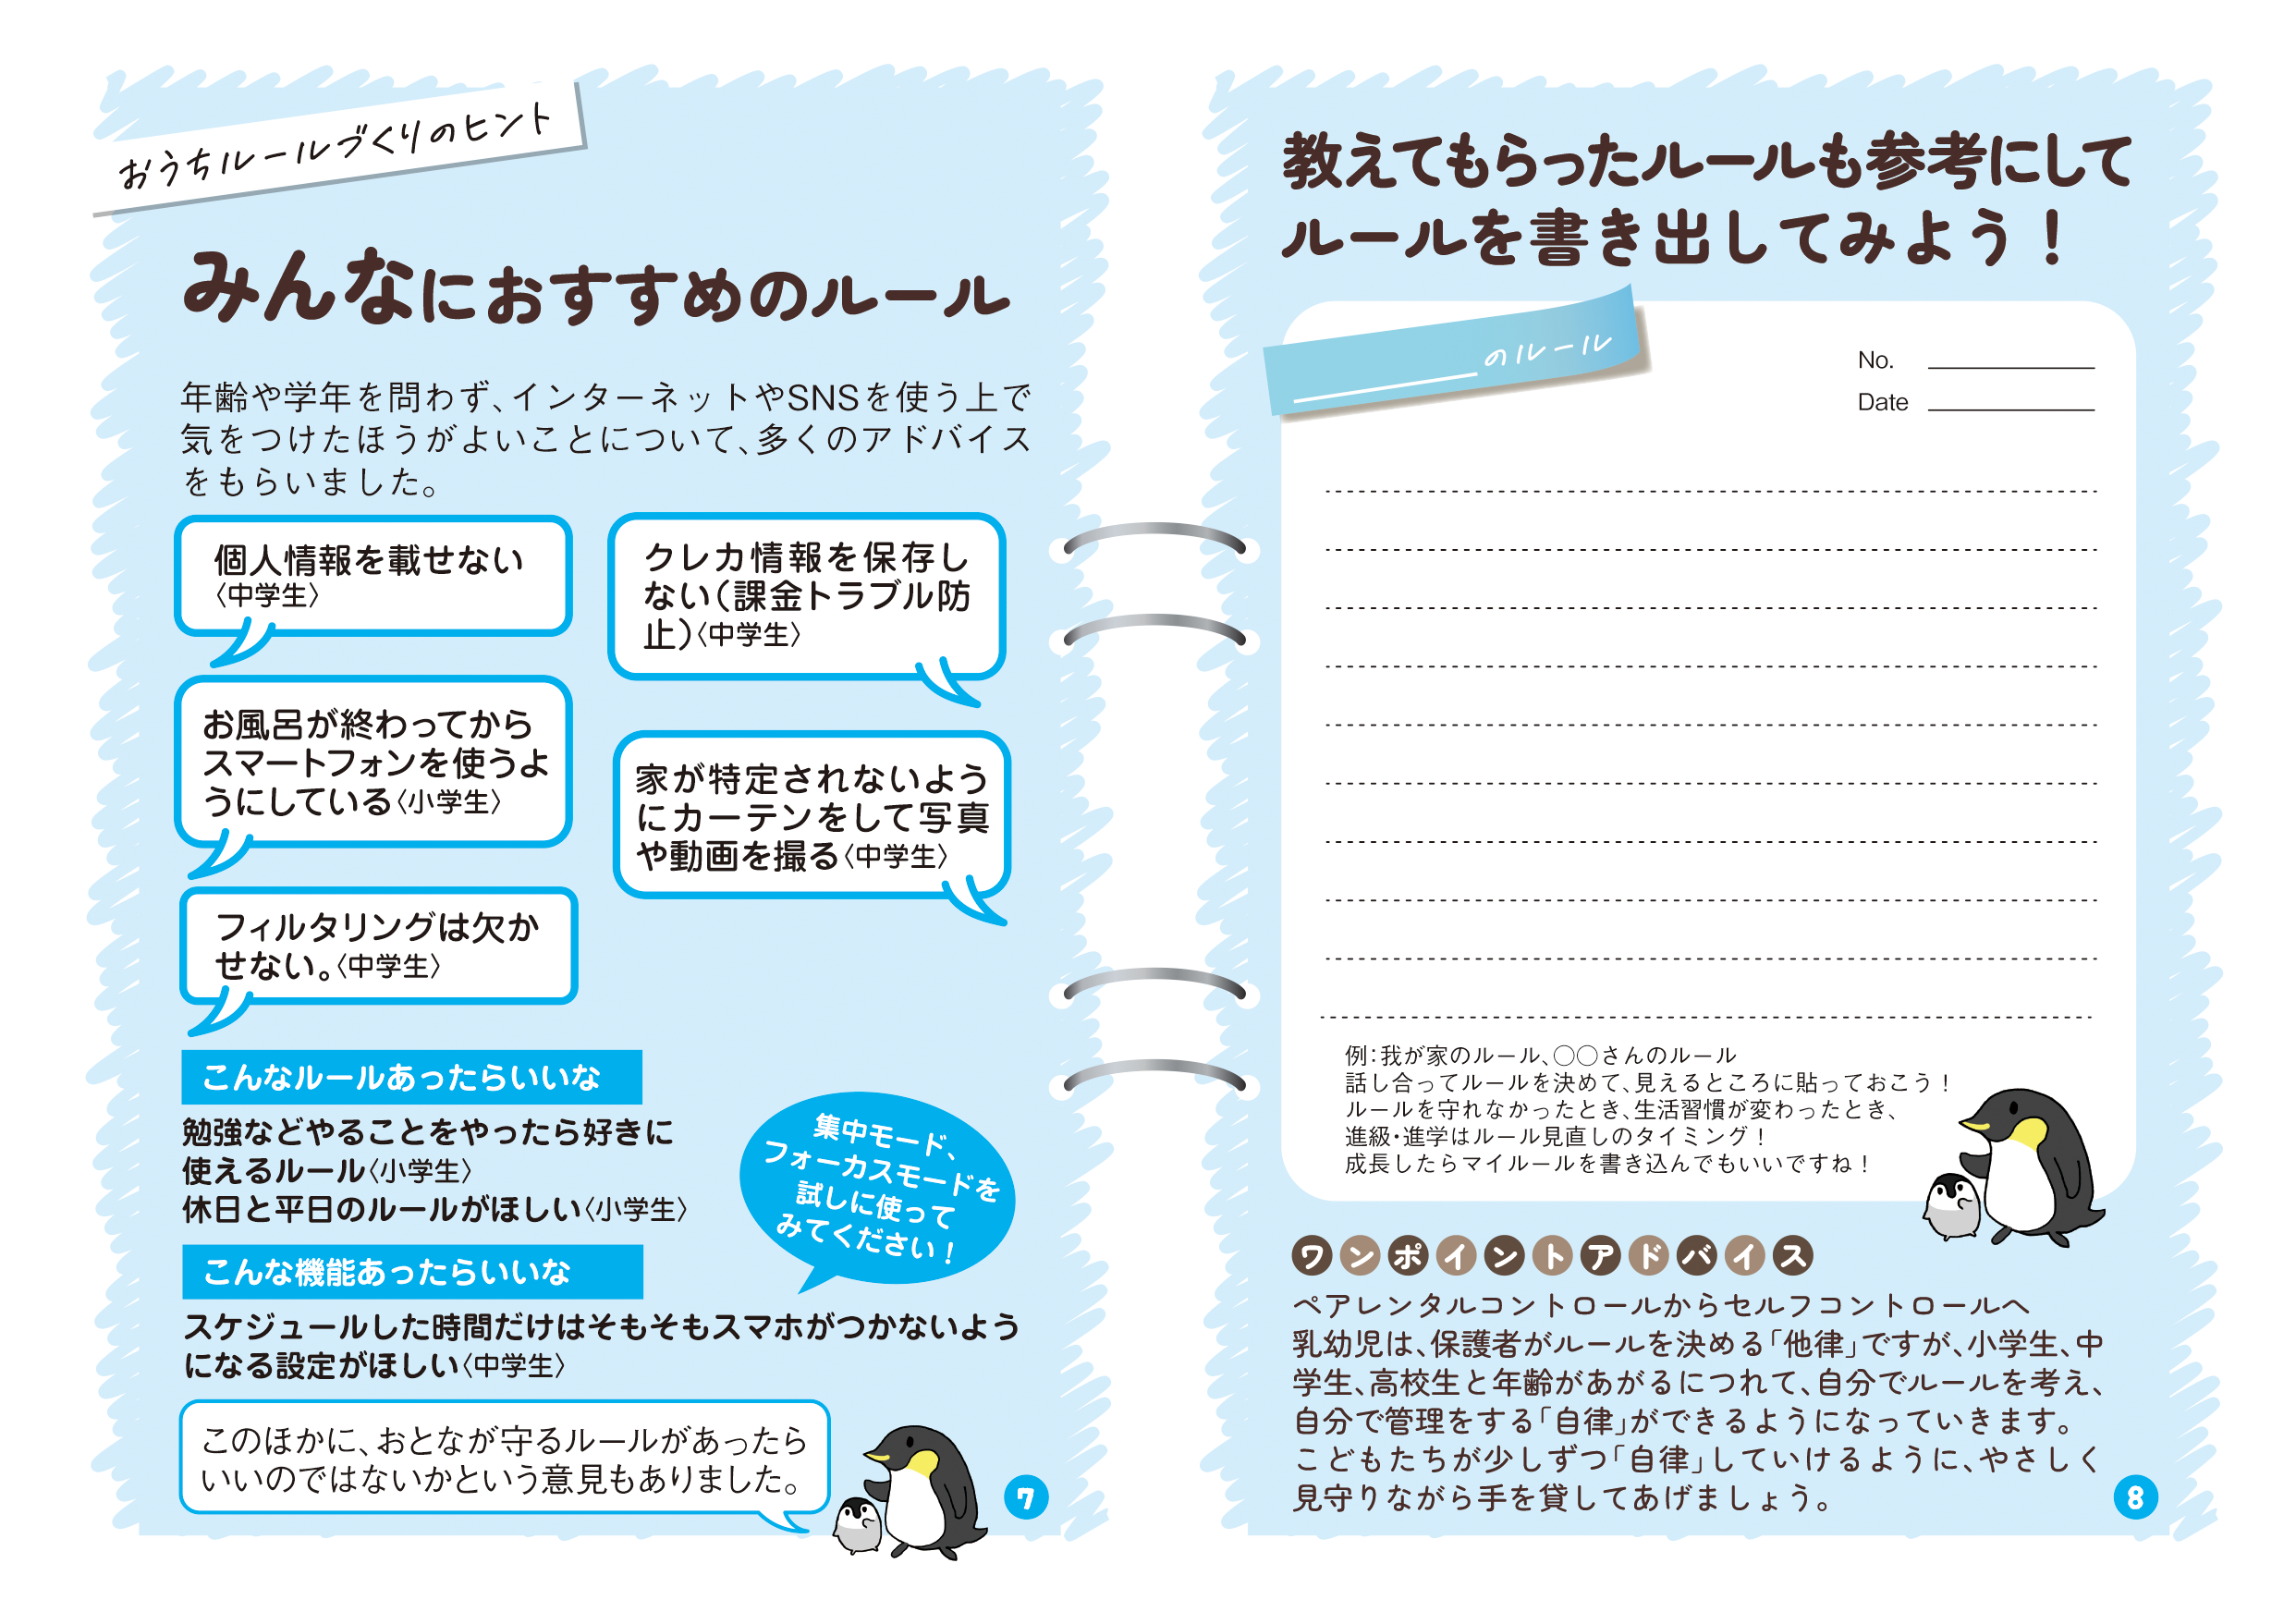 おうちルールづくりのヒント
みんなにおすすめのルール
年齢や学年を問わず、インターネットやSNSを使う上で
気をつけたほうがよいことについて、多くのアドバイス
をもらいました。
個人情報を載せない
〈中学生〉
クレカ情報を保存し
ない(課金トラブル防
止)〈中学生〉
お風呂が終わってから
スマートフォンを使うよ
うにしている〈小学生〉
家が特定されないよう
にカーテンをして写真
や動画を撮る〈中学生〉
フィルタリングは欠か
せない。〈中学生〉
こんなルールあったらいいな
勉強などやることをやったら好きに
使えるルール〈小学生〉
休日と平日のルールがほしい〈小学生〉
集中モード、
フォーカスモードを
試しに使って
みてください！
こんな機能あったらいいな
スケジュールした時間だけはそもそもスマホがつかないよう
になる設定がほしい〈中学生〉
このほかに、おとなが守るルールがあったら
いいのではないかという意見もありました。
7
教えてもらったルールも参考にして
ルールを書き出してみよう！
のルール
No.
Date
例：我が家のルール、○○さんのルール
話し合ってルールを決めて、見えるところに貼っておこう！
ルールを守れなかったとき、生活習慣が変わったとき、
進級・進学はルール見直しのタイミング！
成長したらマイルールを書き込んでもいいですね！
ワンポイントアドバイス
ペアレンタルコントロールからセルフコントロールへ
乳幼児は、保護者がルールを決める「他律」ですが、小学生、中
学生、高校生と年齢があがるにつれて、自分でルールを考え、
自分で管理をする「自律」ができるようになっていきます。
こどもたちが少しずつ「自律」していけるように、やさしく
見守りながら手を貸してあげましょう。
8